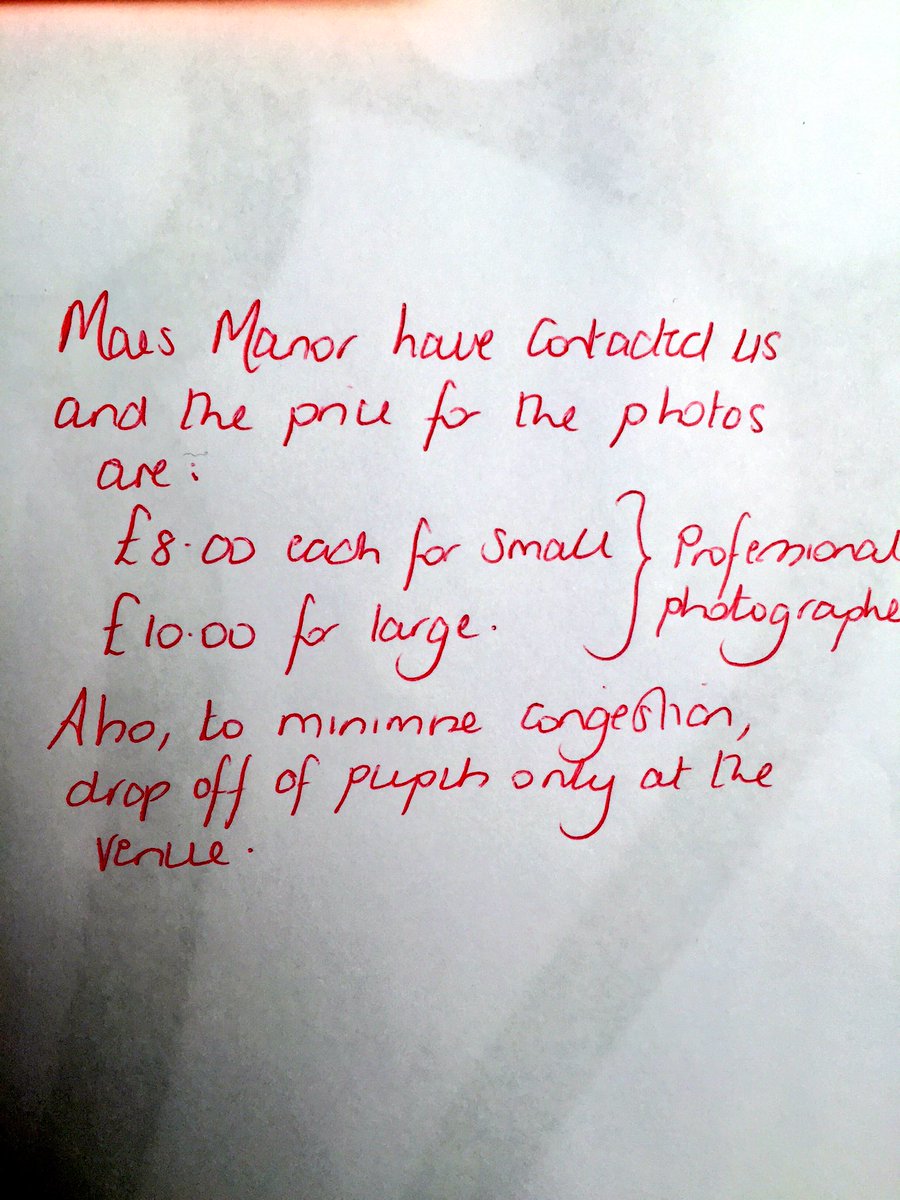 Maes Manor have contacted us
and the price for the photos
are:
£8.00 each for small } Professional
£10.00 for large. } photographe
Also, to minimise congestion,
drop off of pupils only at the
venue.